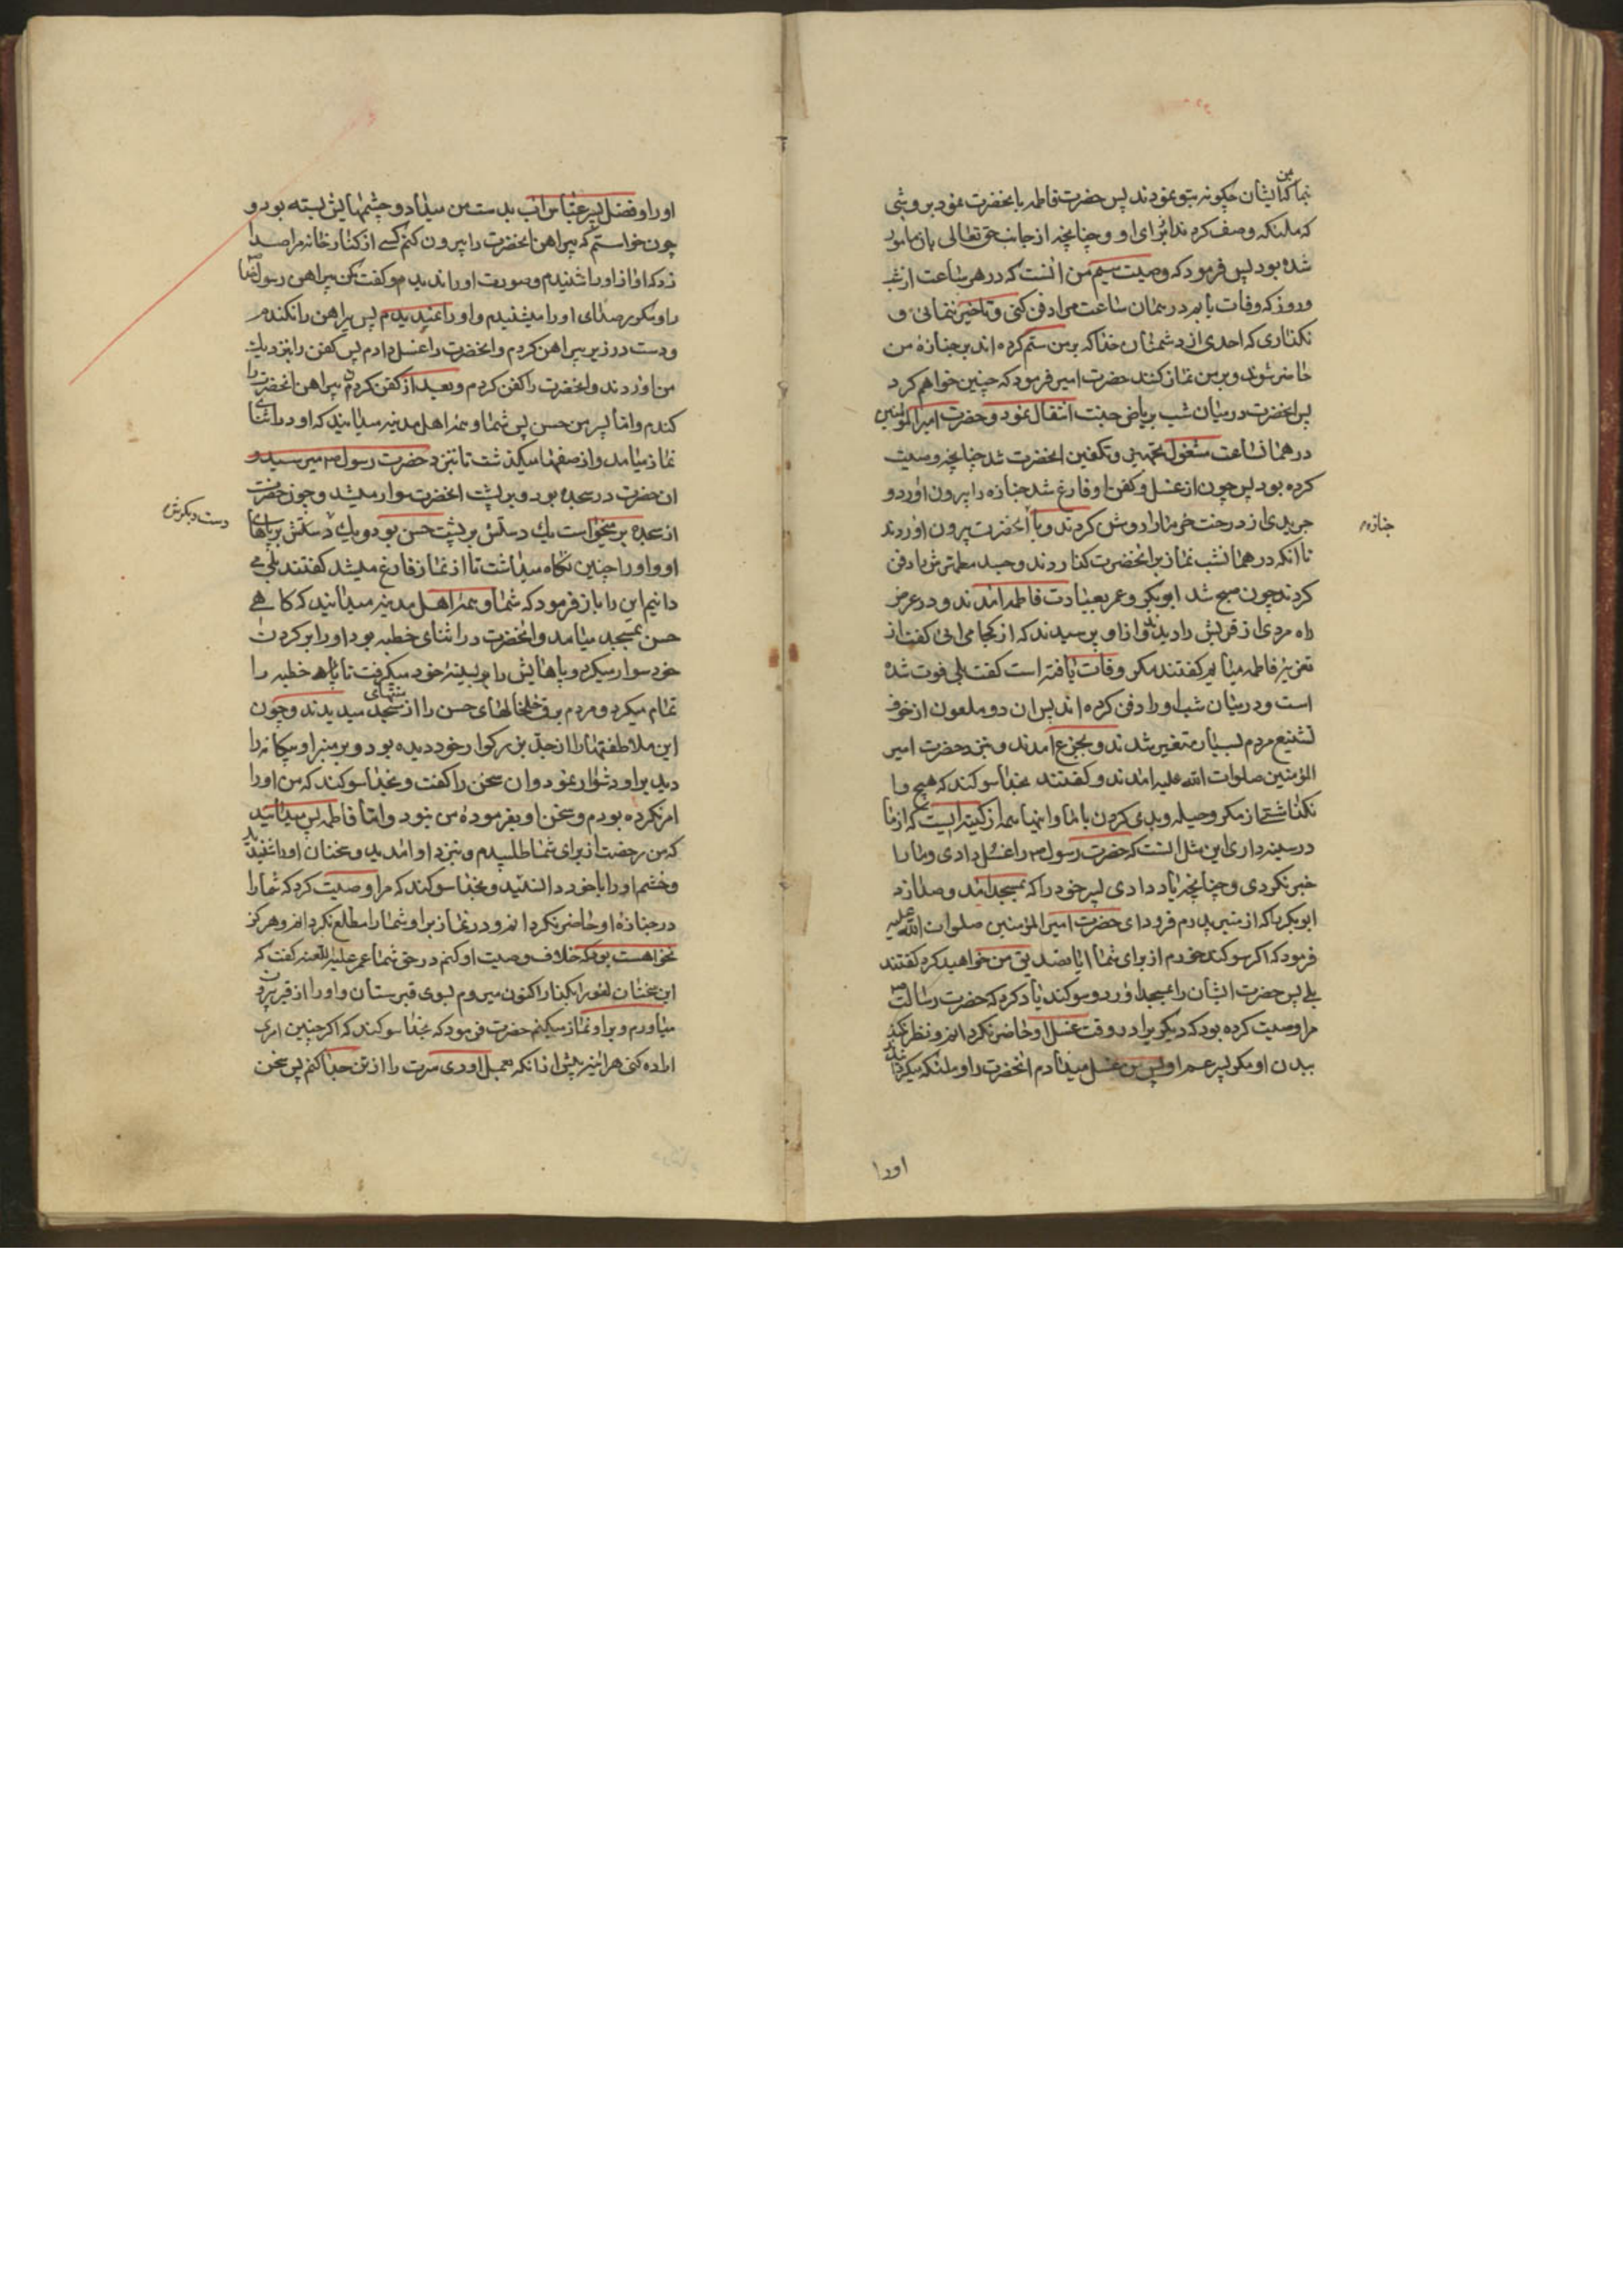 نما که ایشان چگونه بتو نمودند پس حضرت فاطمه بانحضرت نمود بر وشی
که ملئکه وصف کرده بودند برای او و چنانچه از جانب حق تعالی بان مامور
شده بود پس فرمود که وصیت سیم من انست که در هر ساعت از شب
و روز که وفات یابم در همان ساعت مرا دفن کنی و تاخیر ننمائی و
نگذاری که احدی از دشمنان خدا که بر من ستم کرده اند بر جنازه من
حاضر شوند و بر من نماز کنند حضرت امیر فرمود که چنین خواهم کرد
پس انحضرت در میان شب بریاض جنت انتقال نمود و حضرت امیر المؤمنین
در همان ساعت مشغول تجهیز و تکفین انحضرت شد چنانچه وصیت
کرده بود پس چون از غسل و کفن او فارغ شد جنازه را بیرون اورد و
جریدی از درخت خرما را روشن کردند و با انحضرت بیرون اوردند
جنازه
تا انکه در همان شب نماز بر انحضرت کذاردند و جسد مطهرش را دفن
کردند چون صبح شد ابوبکر و عمر بعیادت فاطمه امدند و در عرض
راه مردی از قریش را دیدند و از او پرسیدند که از کجا می ائی کفت از
تعزیه فاطمه میایم کفتند مکر وفات یافته است کفت بلی فوت شده
است و در میان شب او را دفن کرده اند پس ان دو ملعون از خوف
تشنیع مردم بسیار متغیر شدند و بجزع امدند و بنزد حضرت امیر
المؤمنین صلوات الله علیه امدند و کفتند بخدا سوکند که هیچ وا
نکذاشتی از مکر و حیله و بدی کردن با ما و اینها همه از کینه ایست که از ما
در سینه داری این مثل انست که حضرت رسول را غسل دادی و ما را
خبر نکردی و چنانچه یاد دادی پسر خود را که بمسجد امد و صدا زد
ابوبکر را که از منبر پدرم فرود ای حضرت امیر المؤمنین صلوات الله علیه
فرمود که اکر سوکند خورم از برای شما ایا تصدیق من خواهید کرد کفتند
بلی پس حضرت ایشان را بمسجد اورد و سوکند یاد کرد که حضرت رسالت
مرا وصیت کرده بود که دیکری را در وقت غسل او حاضر نکردانم و نظر نکند
ببدن او مکر پسر عم او پس من غسل میدادم انحضرت را و ملئکه میکردانیدند
اورا
او را و فضل پسر عباس اب بدست من میداد و چشمهایش بسته بود و
چون خواستم که پیراهن انحضرت را بیرون کنم کسی از کنار خانه مرا صدا
زد که اواز او را شنیدم و صورت او را ندیدم و کفت مکن پیراهن رسول خدا
را و مکرر صدای او را میشنیدم و او را نمیدیدم پس پیراهن را نکندم
و دست در زیر پیراهن کردم و انحضرت را غسل دادم پس کفن را بنزدیک
من اوردند و انحضرت را کفن کردم و بعد از کفن کردن پیراهن انحضرت را
کندم و اما پسر من حسن پس شما و همه اهل مدینه میدانید که او در اثنای
نماز میامد و از صفها میکذشت تا بنزد حضرت رسول میرسید و
ان حضرت در سجده بود و بر پشت انحضرت سوار میشد و چون حضرت
از سجده بر میخواست یک دستش بر پشت حسن بود و یک دستش بر پاهای
دست دیکرش
او و او را چنین نکاه میداشت تا از نماز فارغ میشد کفتند بلی می
دانیم این را باز فرمود که شما و همه اهل مدینه میدانید که کاهی
حسن بمسجد میامد و انحضرت در اثنای خطبه بود او را بر کردن
خود سوار میکرد و پاهایش را بر سینه خود میکرفت تا خطبه را
تمام میکرد و مردم برق خلخالهای حسن را از منتهای مسجد میدیدند و چون
این ملاطفتها را از جد بزرکوار خود دیده بود و بر منبر او بیکانه را
دید بر او دشوار نمود و ان سخن را کفت و بخدا سوکند که من او را
امر نکرده بودم و سخن او بفرموده من نبود و اما فاطمه پس میدانید
که من رخصت از برای شما طلبیدم و بنزد او امدید و سخنان او را شنیدید
و خشم او را با خود دانستید و بخدا سوکند که مرا وصیت کرد که شما را
در جنازه او حاضر نکردانم و در نماز بر او شما را مطلع نکردانم و هرکز
نخواهست بود که خلاف وصیت او کنم در حق شما عمر علیه اللعنه کفت که
این سخنان لغو را بکذار اکنون میروم بسوی قبرستان و او را از قبر بیرون
میاورم و بر او نماز میکنم حضرت فرمود که بخدا سوکند که اکر چنین امری
اراده کنی هر اینه پیش از انکه بعمل اوری سرت را از تن جدا کنم پس سخن